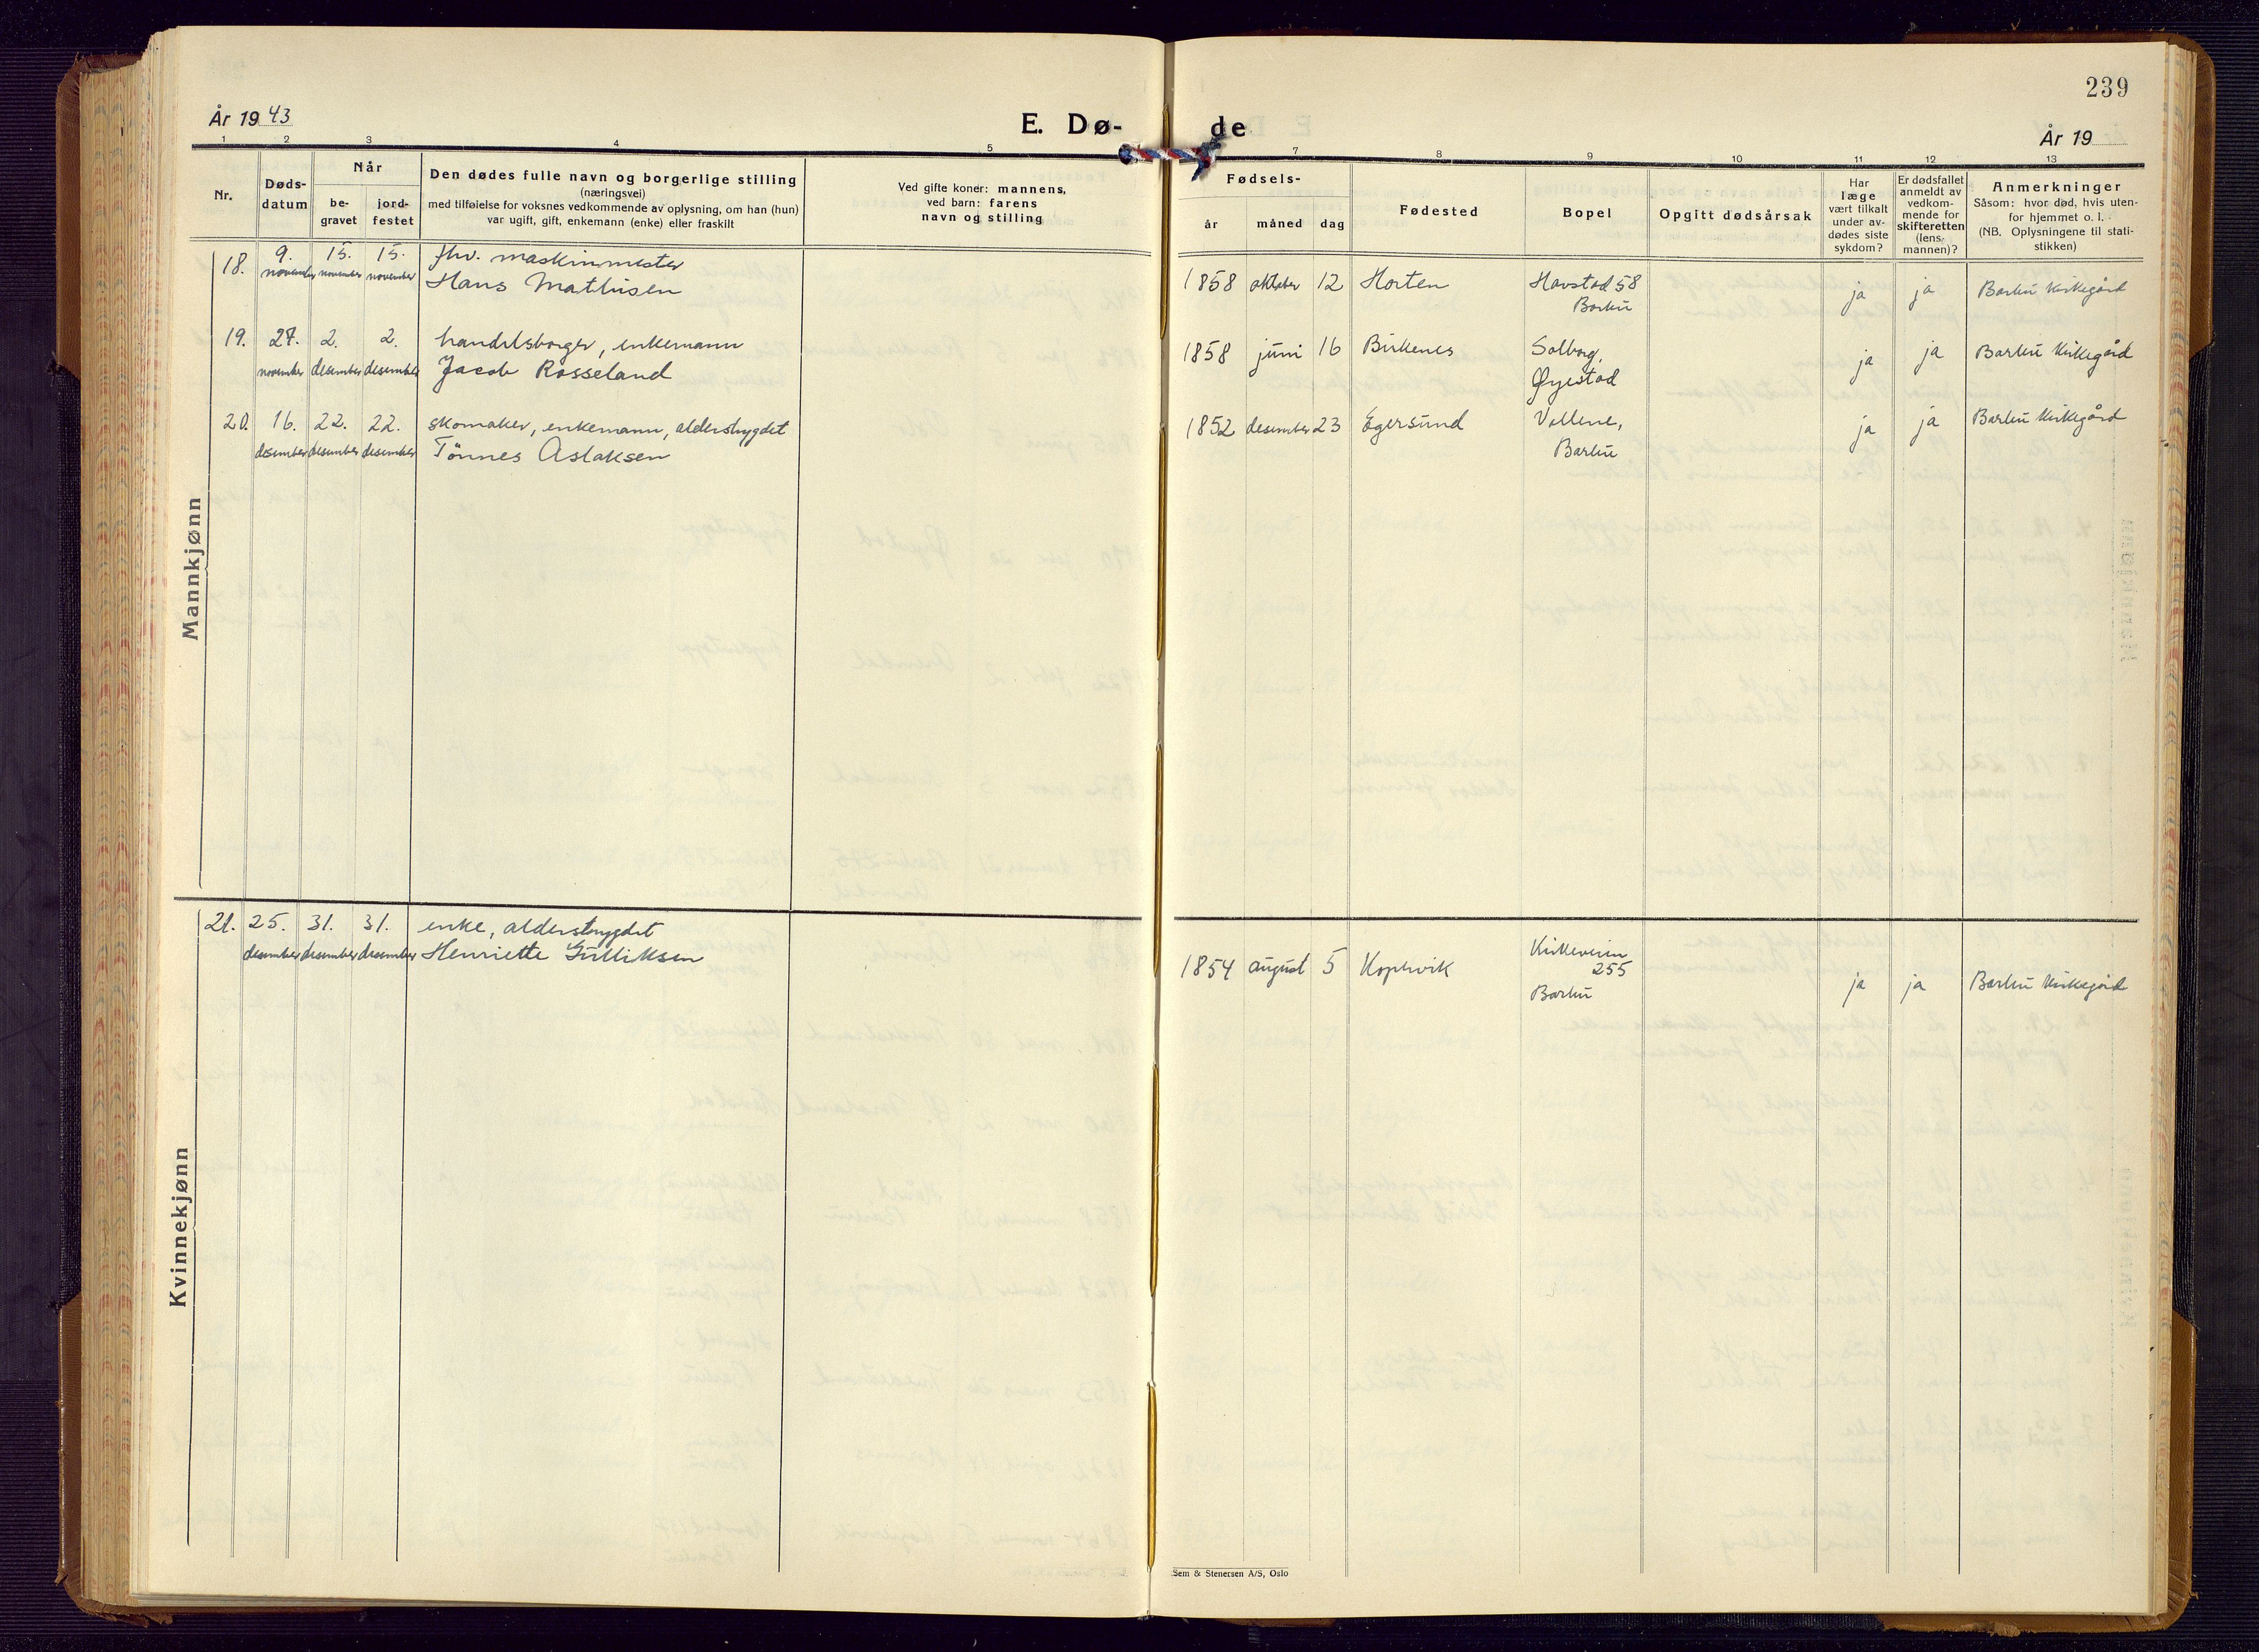 239
År 1943
E. Dø-
de
År 19
1 2 3 4 5 7 8 9 10 11 12 13
Nr.
Døds-
datum
Når
be-
gravet
jord-
festet
Den dødes fulle navn og borgerlige stilling
(næringsvei)
med tilføielse for voksnes vedkommende av oplysning, om han (hun)
var ugift, gift, enkemann (enke) eller fraskilt
Ved gifte koner: mannens,
ved barn: farens
navn og stilling
Fødsels-
år måned dag
Fødested
Bopel
Opgitt dødsårsak
Har
læge
vært tilkalt
under av-
dødes siste
sykdom?
Er dødsfallet
anmeldt av
vedkom-
mende for
skifteretten
(lens-
mannen)?
Anmerkninger
Såsom: hvor død, hvis uten-
for hjemmet o. l.
(NB. Oplysningene til stati-
stikken)
Mannkjønn
18. 9. 15. 15. fhv. maskinmester
november november november Hans Mathisen
1858 oktober 12 Horten Havstad 58
Barbu
ja ja Barbu kirkegård
19. 27. 2. 2. handelsborger, enkemann
november desember desember Jacob Rosseland
1858 juni 16 Birkenes Solborg,
Øyestad
ja ja Barbu kirkegård
20. 16. 22. 22. skomaker, enkemann, alderstrygdet
desember desember desember Tønnes Aslaksen
1852 desember 23 Egersund Vellene,
Barbu
ja ja Barbu kirkegård
Kvinnekjønn
21. 25. 31. 31. enke, alderstrygdet
desember desember desember Henriette Gulliksen
1854 august 5 Kopervik Kirkeveien
255
Barbu
ja ja Barbu kirkegård
Sem & Stenersen A/S, Oslo